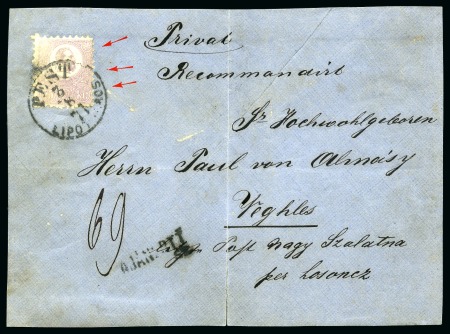 Privat
Recommandirt
Sr Hochwohlgeboren
Herrn Paul von Almásy
Veghles
Nagy Szalatna
per Losoncz
69
PEST
AJÁNLT